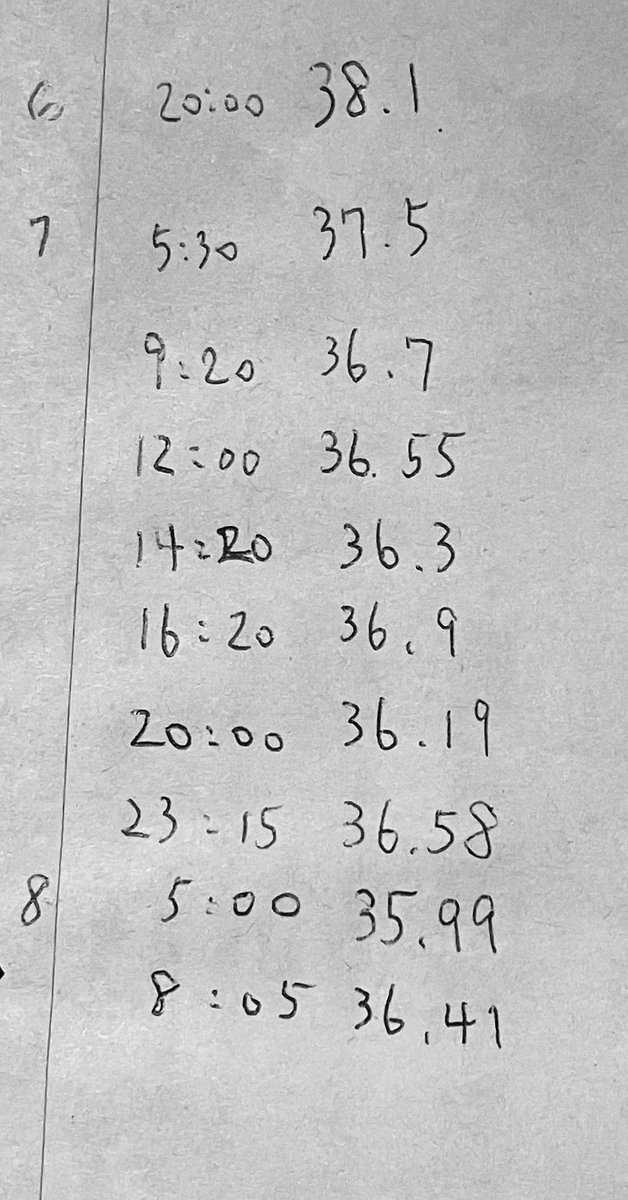 6 20:00 38.1
7 5:30 37.5
9:20 36.7
12:00 36.55
14:20 36.3
16:20 36.9
20:00 36.19
23:15 36.58
8 5:00 35.99
8:05 36.41